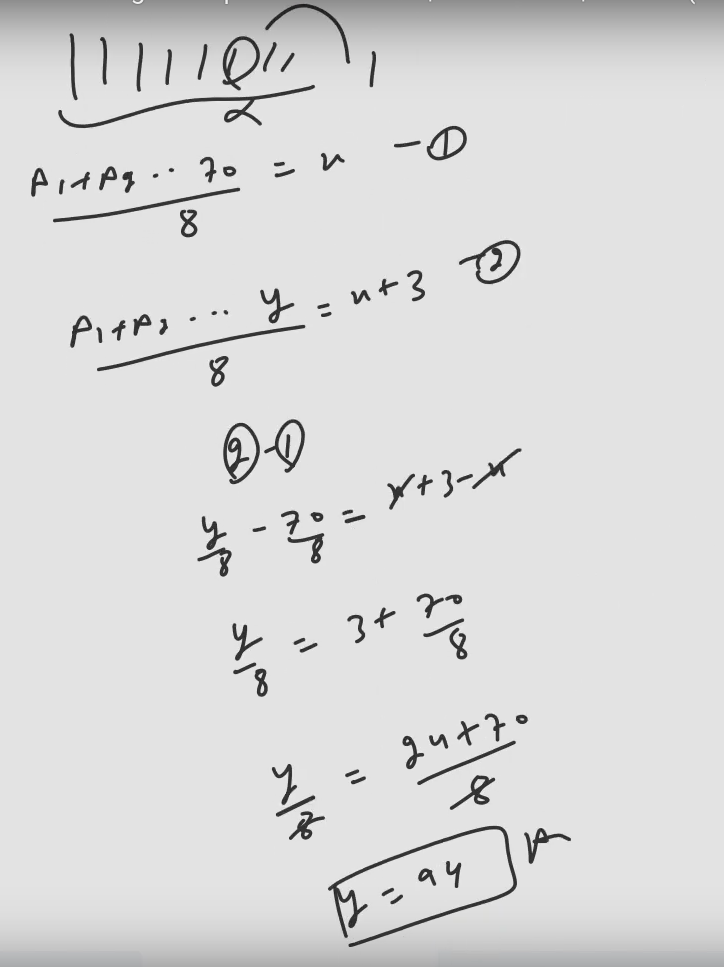 α
A₁+A₂ .. 70 / 8 = x - ①
A₁+A₂ ... y / 8 = x+3 - ②
② - ①
y/8 - 70/8 = x+3-x
y/8 = 3 + 70/8
y/8 = 24+70 / 8
y = 94